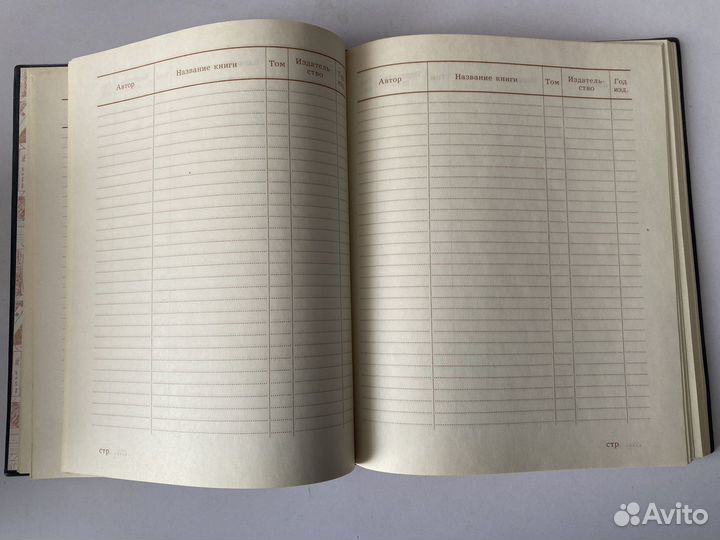 Автор Название книги Том Издатель-
ство
стр.
Автор Название книги Том Издатель- Год
ство изд.
стр.
Avito